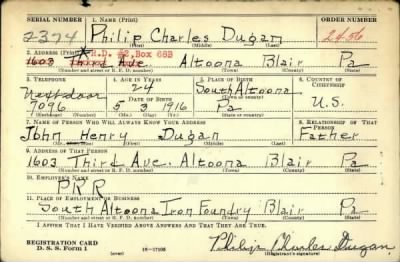 SERIAL NUMBER 1. NAME (Print) ORDER NUMBER
2374 Philip Charles Dugan 2456
(First) (Middle) (Last)
2. ADDRESS (Print) R.D. #2, Box 68B
1603 Third Ave. Altoona Blair Pa
(Number and street or R. F. D. number) (Town) (County) (State)
3. TELEPHONE 4. AGE IN YEARS 5. PLACE OF BIRTH 6. COUNTRY OF CITIZENSHIP
Next door 24 South Altoona
DATE OF BIRTH (Town or county)
7096 5 3 1916 Pa U.S.
(Exchange) (Number) (Mo.) (Day) (Yr.) (State or country)
7. NAME OF PERSON WHO WILL ALWAYS KNOW YOUR ADDRESS 8. RELATIONSHIP OF THAT PERSON
John Henry Dugan Father
(First) (Middle) (Last)
9. ADDRESS OF THAT PERSON
1603 Third Ave. Altoona Blair Pa
(Number and street or R. F. D. number) (Town) (County) (State)
10. EMPLOYER'S NAME
PRR
11. PLACE OF EMPLOYMENT OR BUSINESS
South Altoona Iron Foundry Blair Pa
(Number and street or R. F. D. number) (Town) (County) (State)
I AFFIRM THAT I HAVE VERIFIED ABOVE ANSWERS AND THAT THEY ARE TRUE.
REGISTRATION CARD
D. S. S. Form 1 (over) Philip Charles Dugan
(Registrant's signature)